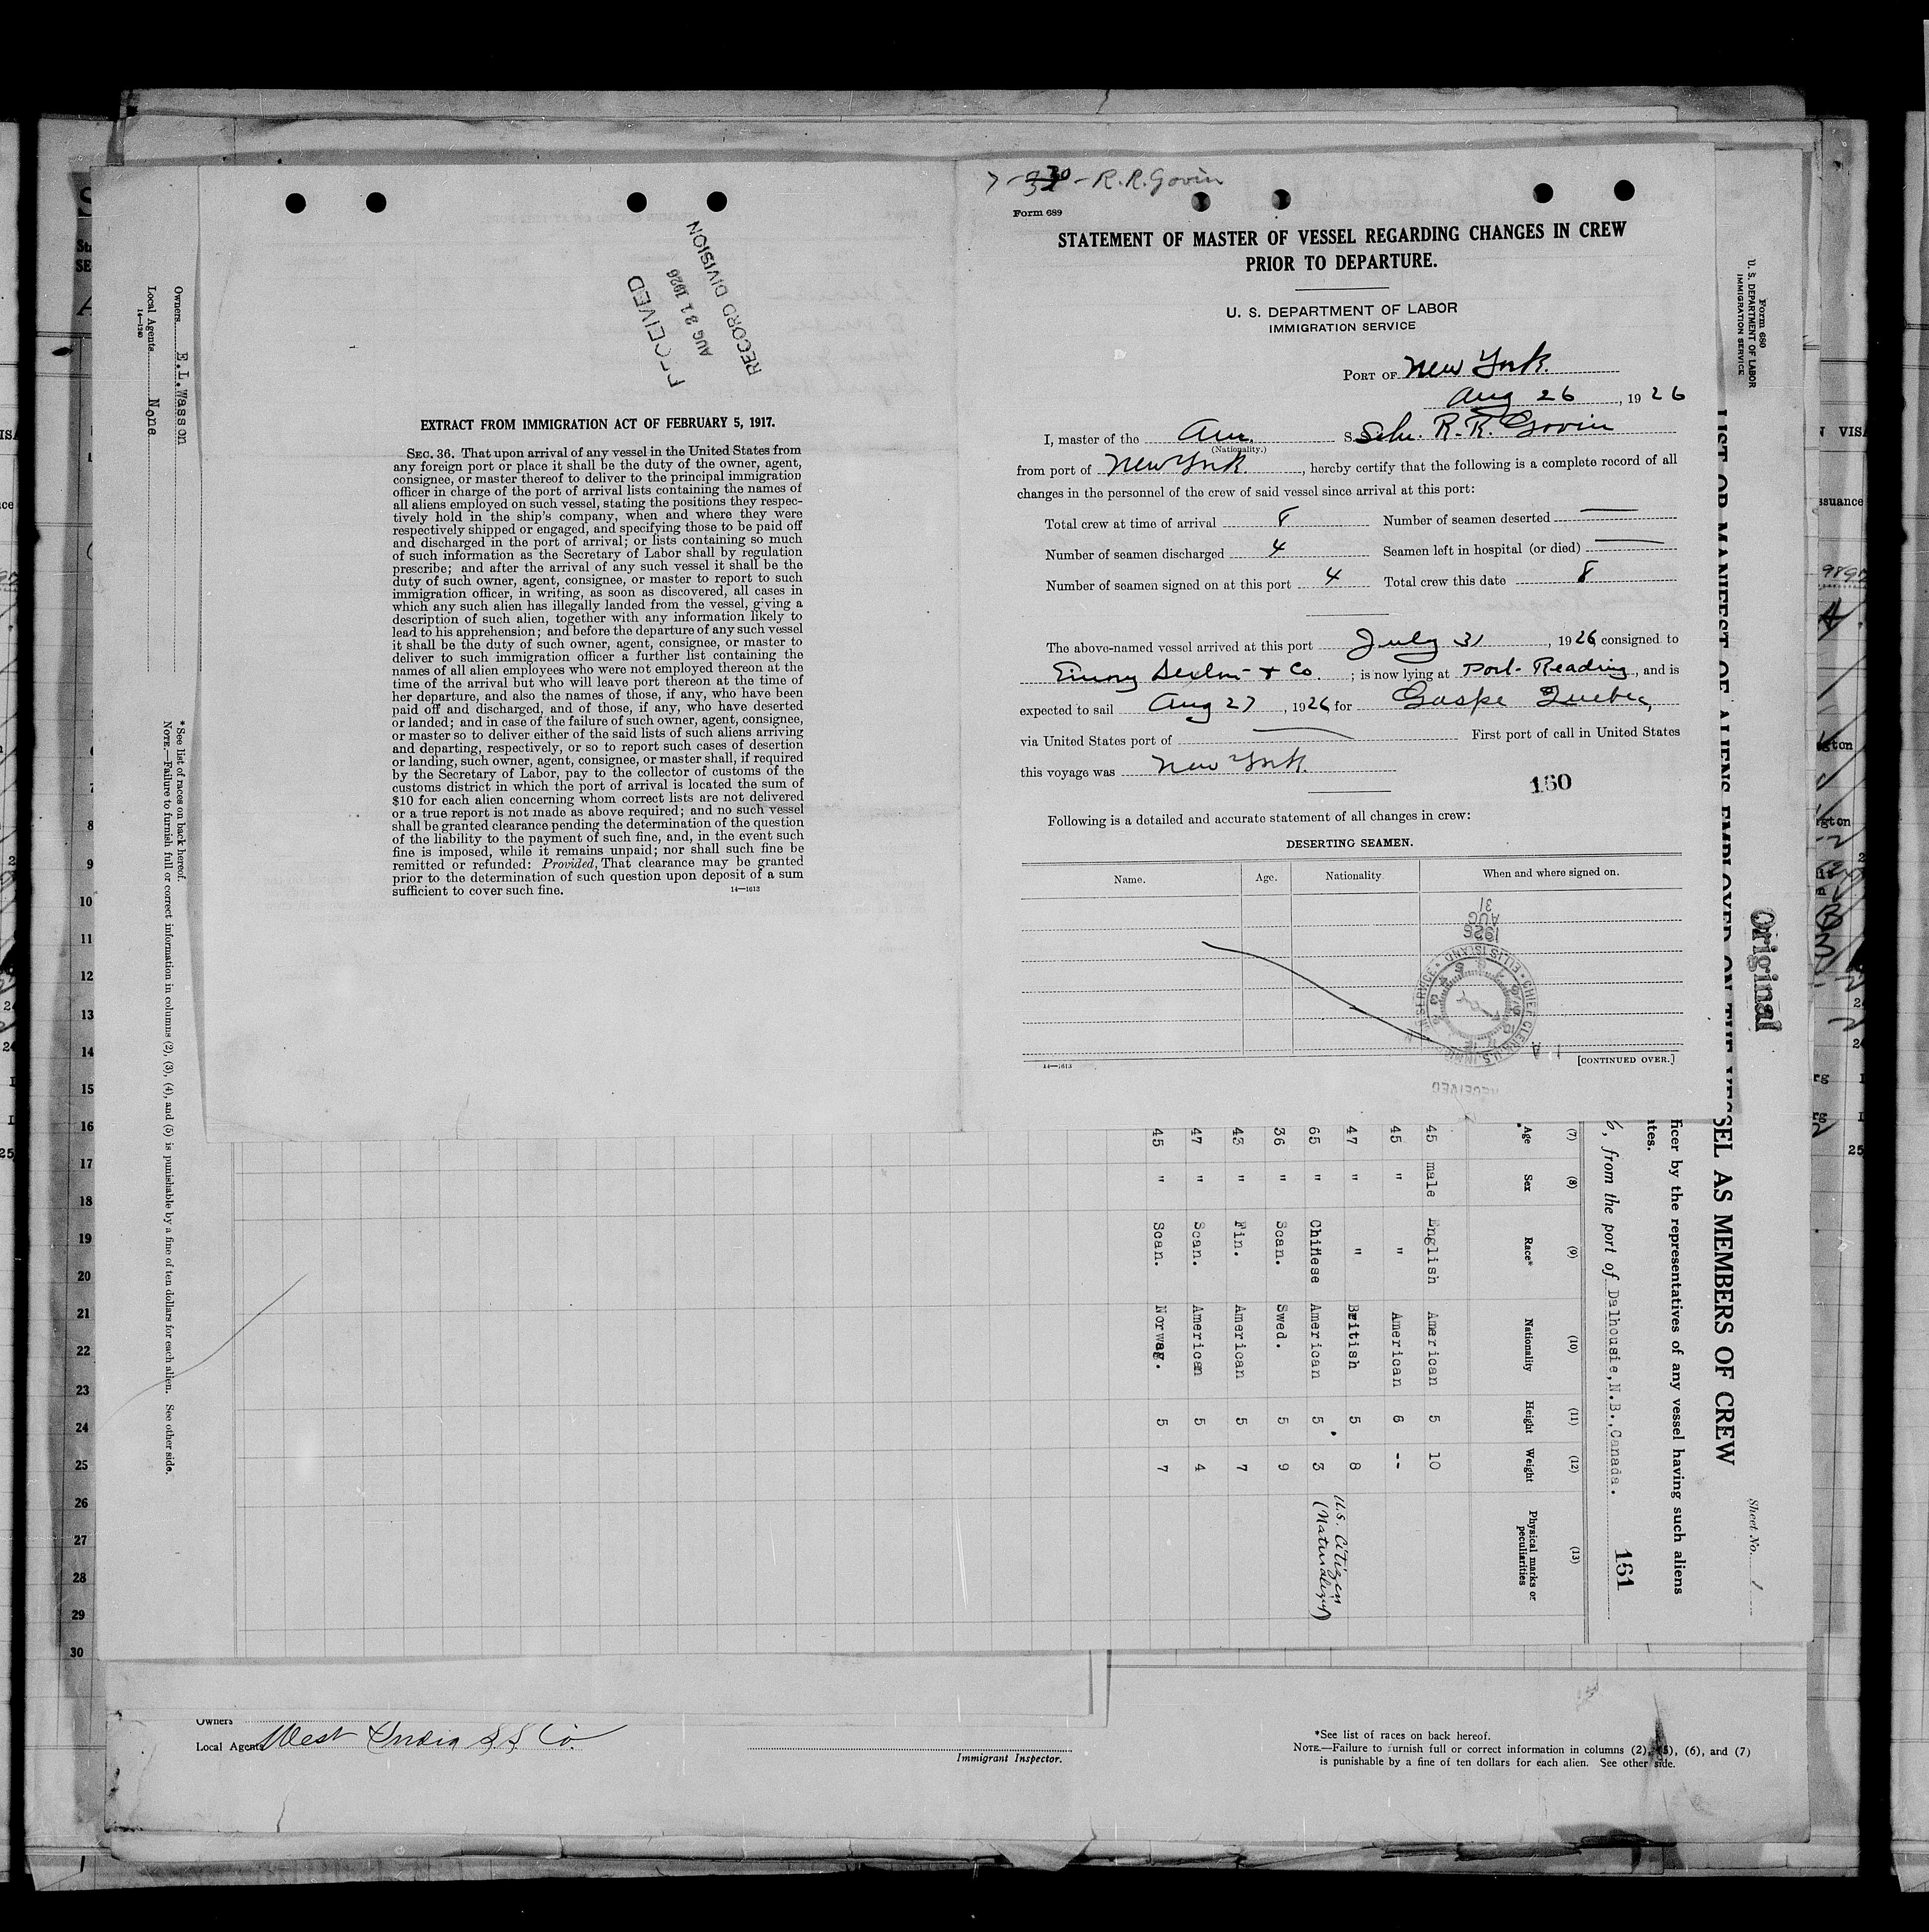 7-30 - R.R. Govin
Form 689
STATEMENT OF MASTER OF VESSEL REGARDING CHANGES IN CREW
PRIOR TO DEPARTURE.
U. S. DEPARTMENT OF LABOR
IMMIGRATION SERVICE
PORT OF New York.
Aug 26, 1926
I, master of the Am. S Schr. R. R. Govin
(Nationality.)
from port of New York, hereby certify that the following is a complete record of all
changes in the personnel of the crew of said vessel since arrival at this port:
Total crew at time of arrival 8 Number of seamen deserted —
Number of seamen discharged 4 Seamen left in hospital (or died) —
Number of seamen signed on at this port 4 Total crew this date 8
The above-named vessel arrived at this port July 31, 1926 consigned to
& Co. ; is now lying at Port-Reading, and is
expected to sail Aug 27, 1926, for Gaspe Quebec,
via United States port of — First port of call in United States
this voyage was New York.
160
Following is a detailed and accurate statement of all changes in crew:
DESERTING SEAMEN.
Name. Age. Nationality. When and where signed on.
1926
AUG
31
CHIEF CLERK U.S. IMMIGRATION SERVICE • ELLIS ISLAND •
RECEIVED
14—1613
[CONTINUED OVER.]
RECEIVED
AUG 31 1926
RECORD DIVISION
EXTRACT FROM IMMIGRATION ACT OF FEBRUARY 5, 1917.
SEC. 36. That upon arrival of any vessel in the United States from
any foreign port or place it shall be the duty of the owner, agent,
consignee, or master thereof to deliver to the principal immigration
officer in charge of the port of arrival lists containing the names of
all aliens employed on such vessel, stating the positions they respec-
tively hold in the ship's company, when and where they were
respectively shipped or engaged, and specifying those to be paid off
and discharged in the port of arrival; or lists containing so much
of such information as the Secretary of Labor shall by regulation
prescribe; and after the arrival of any such vessel it shall be the
duty of such owner, agent, consignee, or master to report to such
immigration officer, in writing, as soon as discovered, all cases in
which any such alien has illegally landed from the vessel, giving a
description of such alien, together with any information likely to
lead to his apprehension; and before the departure of any such vessel
it shall be the duty of such owner, agent, consignee, or master to
deliver to such immigration officer a further list containing the
names of all alien employees who were not employed thereon at the
time of the arrival but who will leave port thereon at the time of
her departure, and also the names of those, if any, who have been
paid off and discharged, and of those, if any, who have deserted
or landed; and in case of the failure of such owner, agent, consignee,
or master so to deliver either of the said lists of such aliens arriving
and departing, respectively, or so to report such cases of desertion
or landing, such owner, agent, consignee, or master shall, if required
by the Secretary of Labor, pay to the collector of customs of the
customs district in which the port of arrival is located the sum of
$10 for each alien concerning whom correct lists are not delivered
or a true report is not made as above required; and no such vessel
shall be granted clearance pending the determination of the question
of the liability to the payment of such fine, and, in the event such
fine is imposed, while it remains unpaid; nor shall such fine be
remitted or refunded: Provided, That clearance may be granted
prior to the determination of such question upon deposit of a sum
sufficient to cover such fine.
14—1613
Form 680
U. S. DEPARTMENT OF LABOR
IMMIGRATION SERVICE
Original
Sheet No. 1
LIST OR MANIFEST OF ALIENS EMPLOYED ON THE VESSEL AS MEMBERS OF CREW
ficer by the representatives of any vessel having such aliens
tes.
6, from the port of Dalhousie, N.B., Canada.
161
(7) (8) (9) (10) (11) (12) (13)
Age Sex Race* Nationality Height Weight Physical marks or peculiarities
45 male English American 5 10
45 " " American 6 --
47 " " British 5 8
65 " Chinese American 5 3 U.S. Citizen (Naturalized)
36 " Scan. Swed. 5 9
43 " Fin. American 5 7
47 " Scan. American 5 4
45 " Scan. Norweg. 5 7
*See list of races on back hereof.
NOTE.—Failure to furnish full or correct information in columns (2), (3), (4), and (5) is punishable by a fine of ten dollars for each alien. See other side.
Owners E.L.Wasson
Local Agents None
14—1240
8
9
10
11
12
13
14
15
16
17
18
19
20
21
22
23
24
25
26
27
28
29
30
Owners
Local Agents West India S S Co.
Immigrant Inspector.
*See list of races on back hereof.
NOTE.—Failure to furnish full or correct information in columns (2), (5), (6), and (7)
is punishable by a fine of ten dollars for each alien. See other side.